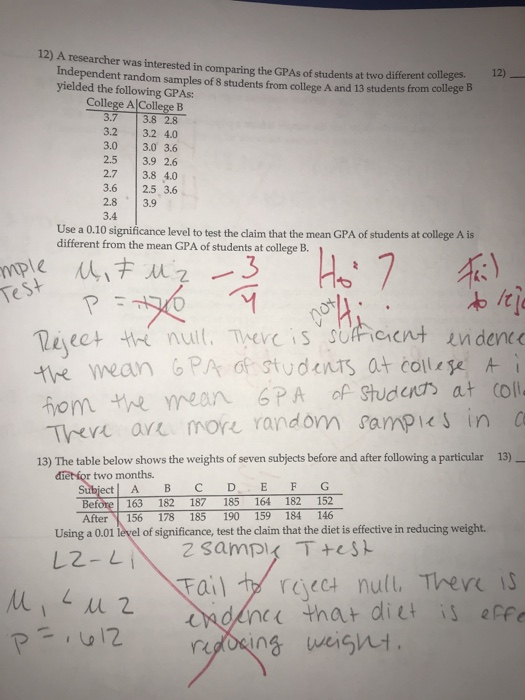 12) A researcher was interested in comparing the GPAs of students at two different colleges. 12)
Independent random samples of 8 students from college A and 13 students from college B
yielded the following GPAs:
College A College B
3.7 3.8 2.8
3.2 3.2 4.0
3.0 3.0 3.6
2.5 3.9 2.6
2.7 3.8 4.0
3.6 2.5 3.6
2.8 3.9
3.4
Use a 0.10 significance level to test the claim that the mean GPA of students at college A is
different from the mean GPA of students at college B.
mple M₁ ≠ M₂ -3/4 Ho: ? Fail
Test P = not Hi: to reje
Reject the null. There is sufficient endence
the mean GPA of students at college A i
from the mean GPA of students at coll
There are more random samples in a
13) The table below shows the weights of seven subjects before and after following a particular 13)
diet for two months.
Subject A B C D E F G
Before 163 182 187 185 164 182 152
After 156 178 185 190 159 184 146
Using a 0.01 level of significance, test the claim that the diet is effective in reducing weight.
L2-L1 2 sample T test
Fail to reject null. There is
M₁ < M₂ endence that diet is effe
P = .612 reducing weight.